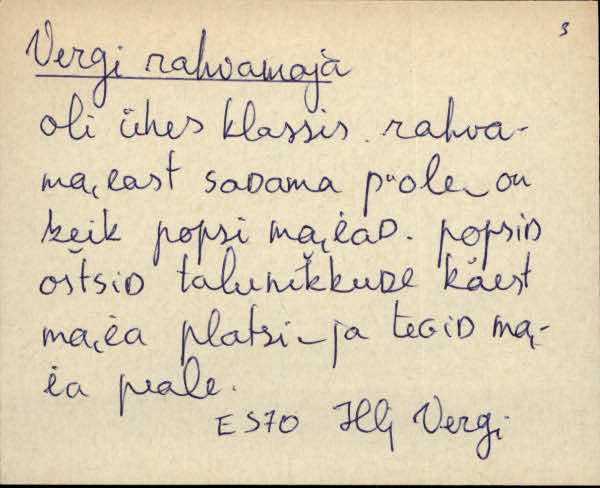 3
Vergi rahvamaja
oli ühes klassis. rahva-
ma͕ east saDama p̈ole on
keik popsi ma͕ ėaD. popsiD
oštsiD talunikkuDe käest
ma͕ ėa platsi ja teGiD ma͕ -
ėa peale.
ES70 Hlj Vergi